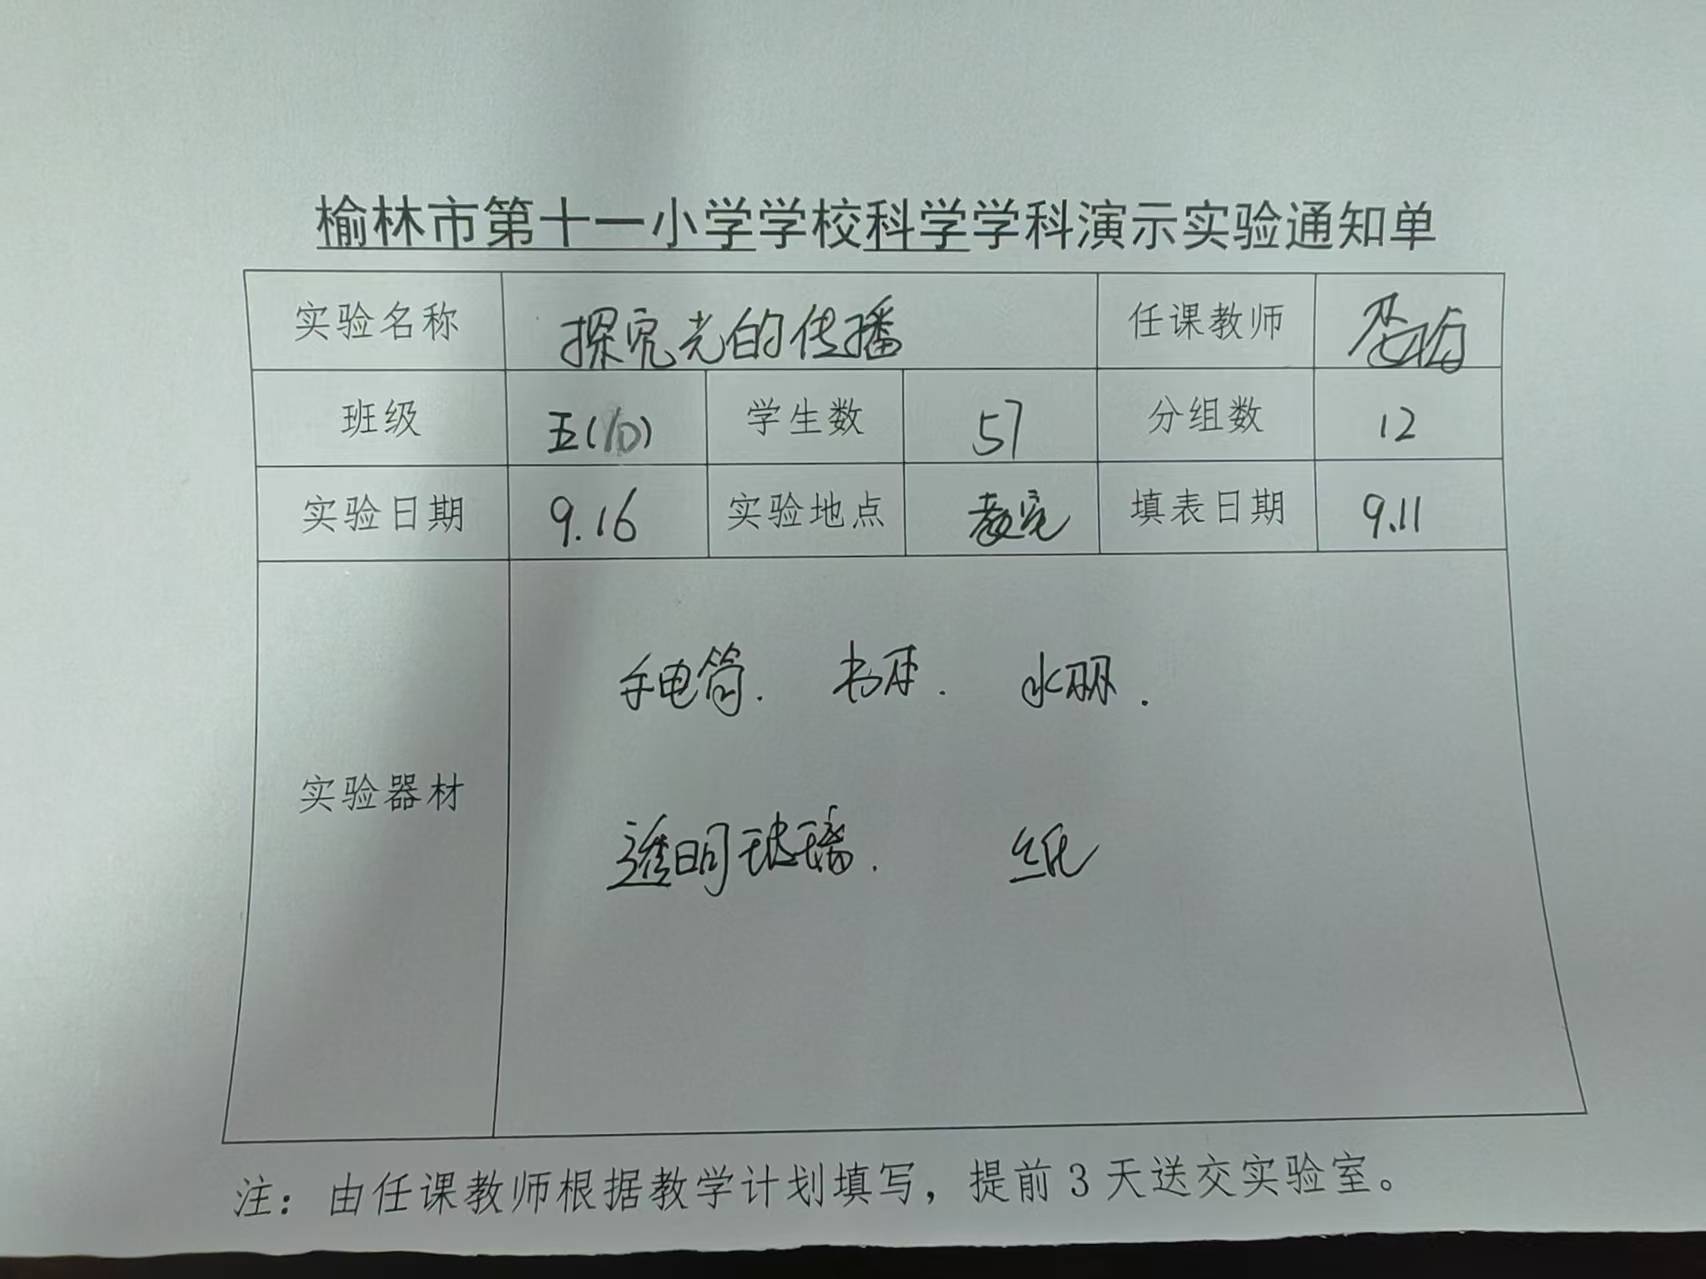 榆林市第十一小学学校科学学科演示实验通知单
实验名称 探究光的传播 任课教师
班级 五(10) 学生数 57 分组数 12
实验日期 9.16 实验地点 教室 填表日期 9.11
手电筒. 书本. 水瓶.
实验器材
透明玻璃. 纸
注：由任课教师根据教学计划填写，提前 3 天送交实验室。